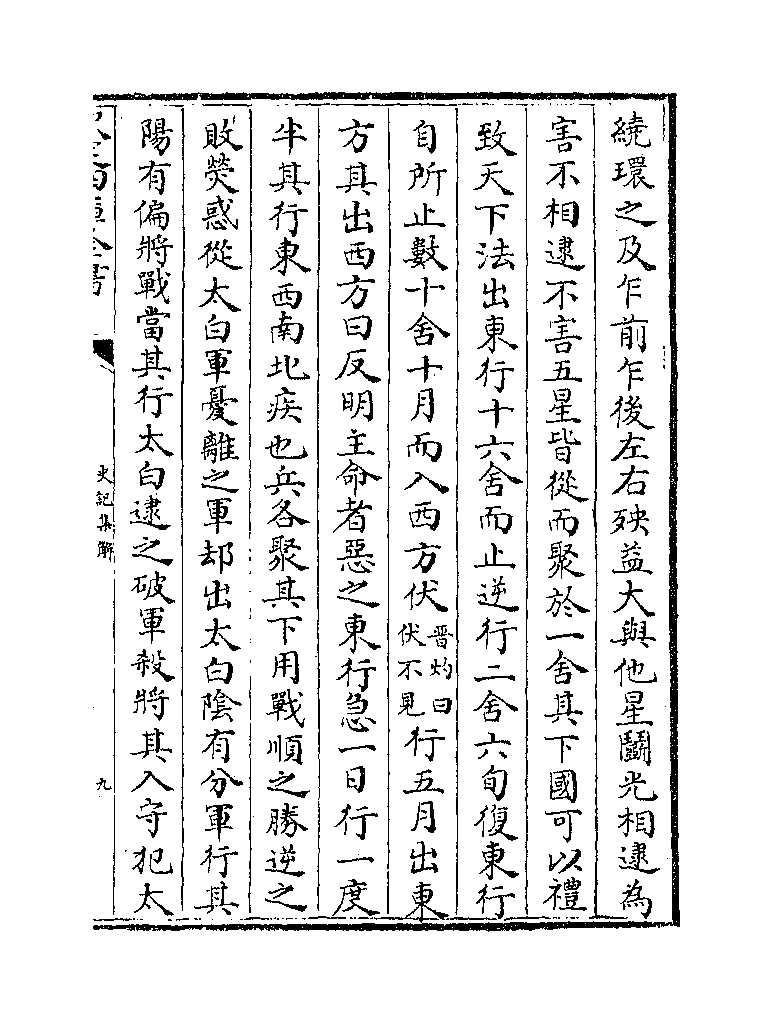 繞環之及乍前乍後左右殃益大與他星鬬光相逮為
害不相逮不害五星皆從而聚於一舍其下國可以禮
致天下法出東行十六舍而止逆行二舍六旬復東行
自所止數十舍十月而入西方伏晋灼曰伏不見行五月出東
方其出西方曰反明主命者惡之東行急一日行一度
半其行東西南北疾也兵各聚其下用戰順之勝逆之
敗熒惑從太白軍憂離之軍却出太白陰有分軍行其
陽有偏將戰當其行太白逮之破軍殺將其入守犯太
史記集解
九